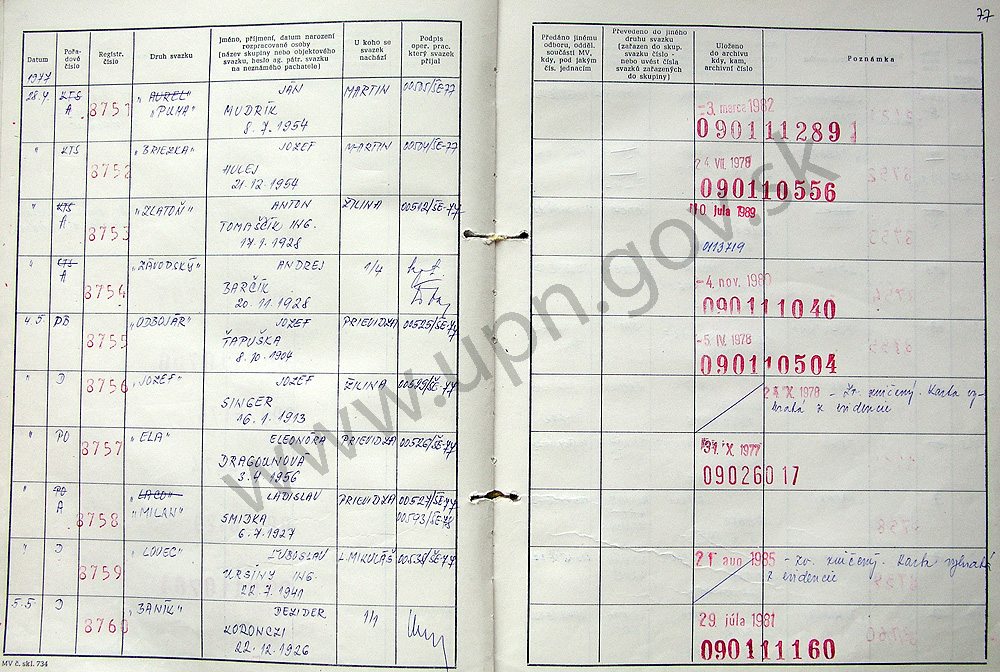 77
Datum
Pořa-
dové
číslo
Registr.
číslo
Druh svazku
Jméno, příjmení, datum narození
rozpracované osoby
(název skupiny nebo objektového
svazku, heslo ag. pátr. svazku
na neznámého pachatele)
U koho se
svazek
nachází
Podpis
oper. prac.
který svazek
přijal
Předáno jinému
odboru, odděl.
součásti MV,
kdy, pod jakým
čís. jednacím
Převedeno do jiného
druhu svazku
(zařazen do skup.
svazku číslo -
nebo uvést čísla
svazků zařazených
do skupiny)
Uloženo
do archivu
kdy, kam,
archivní číslo
Poznámka
1977
28.4. KTS A 8751 "AUREL" "PUMA" JAN MARTIN 00505/ŠE-77
MUDRÍK
8.7.1954
-3. marca 1982
090111289
" KTS 8752 "BRIEZKA" JOZEF MARTIN 00504/ŠE-77
HULEJ
21.12.1954
24. VII. 1978
090110556
" KTS A 8753 "ZLATOŇ" ANTON ŽILINA 00512/ŠE-77
TOMAŠČÍK ING.
17.1.1928
10. júla 1989
0113719
" KTS A 8754 "ZÁVODSKÝ" ANDREJ 1/4
BARČÍK
20.11.1928
-4. nov. 1980
090111040
4.5. PB 8755 "ODBOJÁR" JOZEF PRIEVIDZA 00525/ŠE-77
ŤAPUŠKA
8.10.1904
-5. IV. 1978
090110504
" D 8756 "JOZEF" JOZEF ŽILINA 00529/ŠE-77
SINGER
16.1.1913
24. X. 1978 - Zv. zničený. Karta vy-
bratá z evidencie
" PO 8757 "ELA" ELEONORA PRIEVIDZA 00526/ŠE-77
DRAGOUNOVA
3.4.1956
31. X. 1977
09026017
" PO A 8758 "LACO" "MILAN" LADISLAV PRIEVIDZA 00527/ŠE-77
00543/ŠE-78
SMIDKA
6.7.1927
" D 8759 "LOVEC" ĽUBOSLAV L. MIKULÁŠ 00538/ŠE-77
URSÍNY ING.
22.7.1941
21. aug. 1985 - zv. zničený. Karta vybratá
z evidencie
5.5. D 8760 "BANÍK" DEZIDER 1/1
KORONCZI
22.12.1926
29. júla 1981
090111160
MV č. skl. 734
www.upn.gov.sk